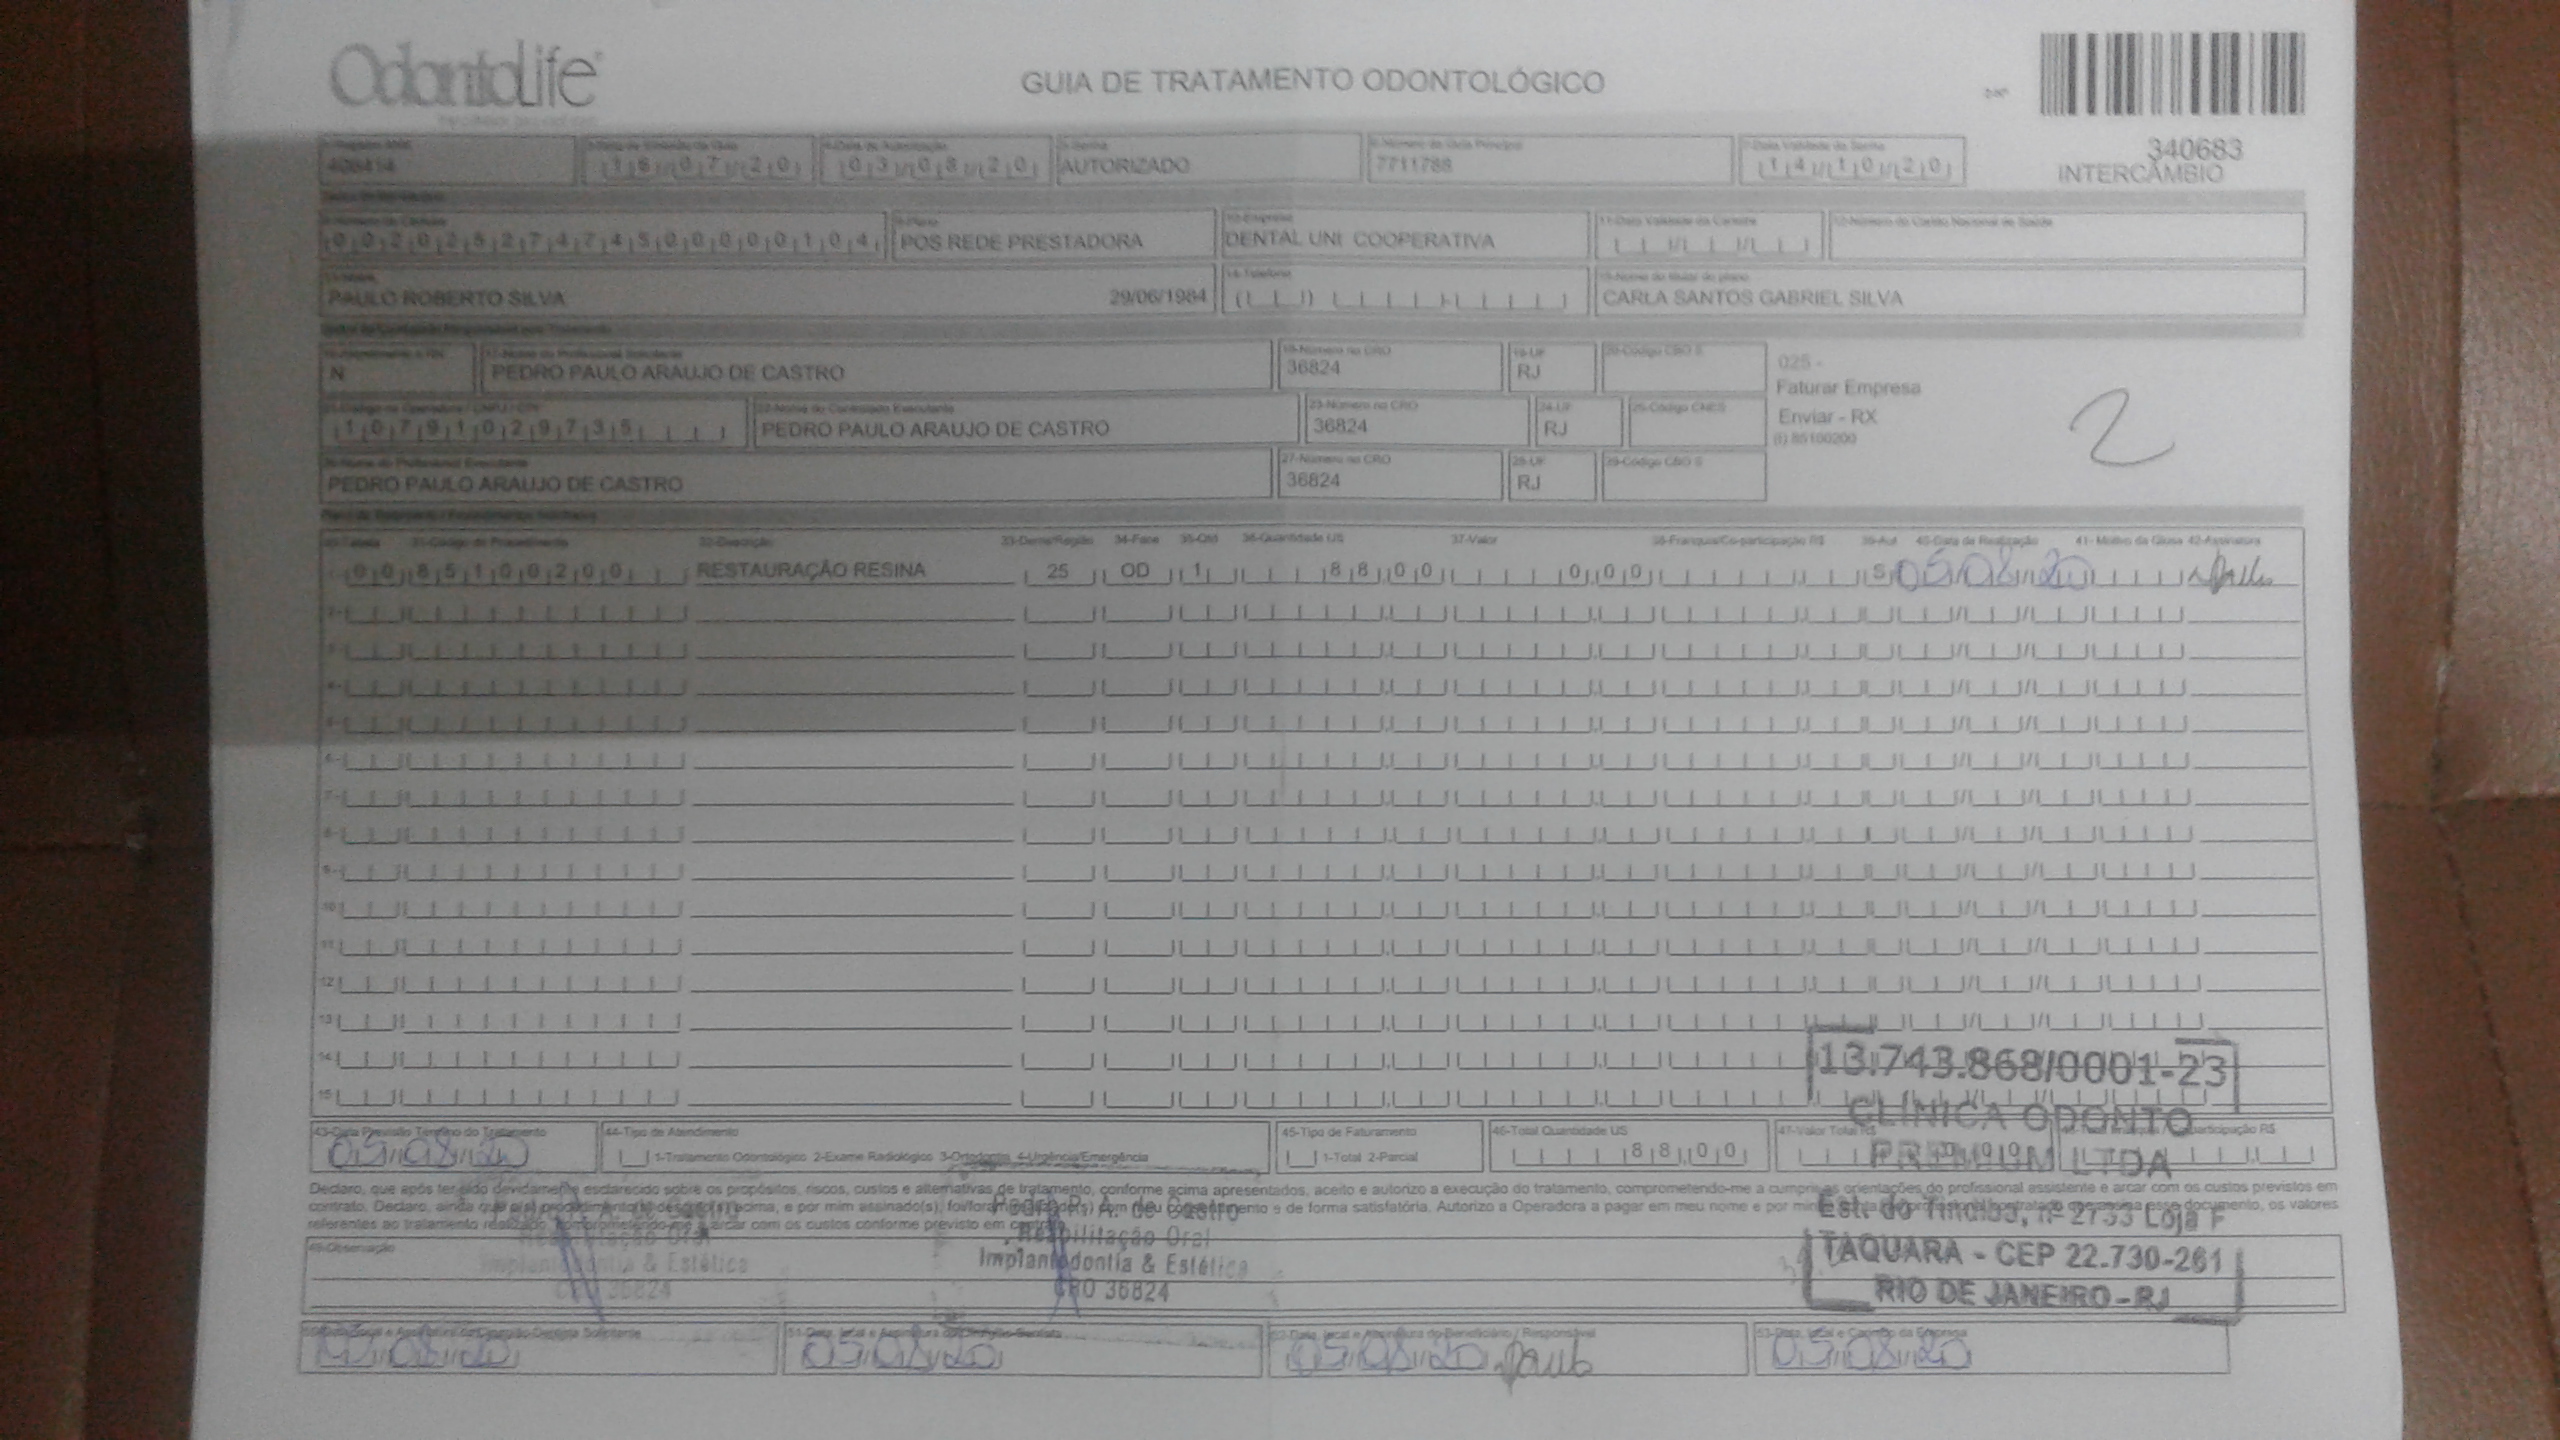 OdontoLife
GUIA DE TRATAMENTO ODONTOLÓGICO
2-Nº
340683
INTERCÂMBIO
16/07/20
03/08/20
AUTORIZADO
7711788
7-Data Validade da Senha
14/10/20
POS REDE PRESTADORA
10-Empresa
DENTAL UNI COOPERATIVA
11-Data Validade da Carteira
12-Número do Cartão Nacional de Saúde
PAULO ROBERTO SILVA 29/06/1984
14-Telefone
15-Nome do titular do plano
CARLA SANTOS GABRIEL SILVA
N
17-Nome do Profissional Solicitante
PEDRO PAULO ARAUJO DE CASTRO
18-Número no CRO
36824
19-UF
RJ
20-Código CBO S
025 -
Faturar Empresa
Enviar - RX
(I) 85100200
2
10791029735
22-Nome do Contratado Executante
PEDRO PAULO ARAUJO DE CASTRO
23-Número no CRO
36824
24-UF
RJ
25-Código CNES
PEDRO PAULO ARAUJO DE CASTRO
27-Número no CRO
36824
28-UF
RJ
29-Código CBO S
30-Tabela 31-Código do Procedimento 32-Descrição 33-Dente/Região 34-Face 35-Qtd 36-Quantidade US 37-Valor 38-Franquia/Co-participação R$ 39-Aut 40-Data de Realização 41- Motivo da Glosa 42-Assinatura
00 85100200 RESTAURAÇÃO RESINA 25 OD 1 88,00 0,00 S 05/08/20 Paulo
2-
3-
4-
5-
6-
7-
8-
9-
10
11
12
13
14
15
13.743.868/0001-23
CLÍNICA ODONTO
PREMIUM LTDA
Estr. do Tindiba, nº 2733 Loja F
TAQUARA - CEP 22.730-261
RIO DE JANEIRO - RJ
43-Data Previsão Término do Tratamento
05/08/20
44-Tipo de Atendimento
1-Tratamento Odontológico 2-Exame Radiológico 3-Ortodontia 4-Urgência/Emergência
45-Tipo de Faturamento
1-Total 2-Parcial
46-Total Quantidade US
88,00
47-Valor Total R$
participação R$
Declaro, que após ter sido devidamente esclarecido sobre os propósitos, riscos, custos e alternativas de tratamento, conforme acima apresentados, aceito e autorizo a execução do tratamento, comprometendo-me a cumprir as orientações do profissional assistente e arcar com os custos previstos em
contrato. Declaro, ainda que o(s) procedimento(s) descrito(s) acima, e por mim assinado(s), foi/foram realizado(s) com meu consentimento e de forma satisfatória. Autorizo a Operadora a pagar em meu nome e por minha
referentes ao tratamento realizado, comprometendo-me a arcar com os custos conforme previsto em contrato.
49-Observação
Reabilitação Oral
Implantodontia & Estética
CRO 36824
Pedro P. A. de Castro
Reabilitação Oral
Implantodontia & Estética
CRO 36824
05/08/20
05/08/20
52-Data, local e Assinatura do Beneficiário / Responsável
05/08/20 Paulo
53-Data, local e Carimbo da Empresa
05/08/20